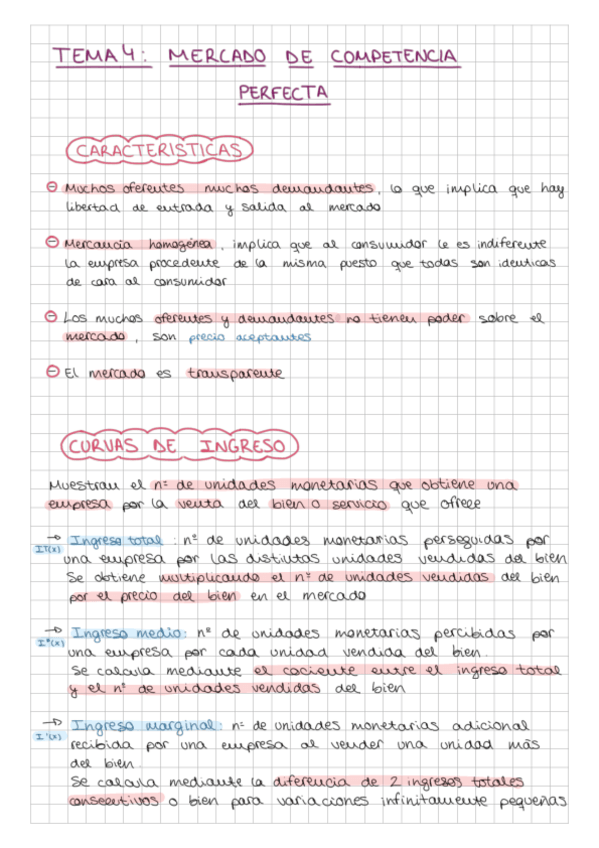 TEMA 4: MERCADO DE COMPETENCIA
PERFECTA
CARACTERISTICAS
Muchos oferentes muchos demandantes, lo que implica que hay
libertad de entrada y salida al mercado
Mercancia homogénea, implica que al consumidor le es indiferente
la empresa procedente de la misma puesto que todas son identicas
de cara al consumidor
Los muchos oferentes y demandantes no tienen poder sobre el
mercado, son precio aceptantes
El mercado es transparente
CURVAS DE INGRESO
Muestran el nº de unidades monetarias que obtiene una
empresa por la venta del bien o servicio que ofrece
→ Ingreso total: nº de unidades monetarias perseguidas por
IT(x)
una empresa por las distintas unidades vendidas del bien
Se obtiene multiplicando el nº de unidades vendidas del bien
por el precio del bien en el mercado
→ Ingreso medio: nº de unidades monetarias percibidas por
I*(x)
una empresa por cada unidad vendida del bien.
Se calcula mediante el cociente entre el ingreso total
y el nº de unidades vendidas del bien
→ Ingreso marginal: nº de unidades monetarias adicional
I'(x)
recibida por una empresa al vender una unidad más
del bien.
Se calcula mediante la diferencia de 2 ingresos totales
consecutivos o bien para variaciones infinitamente pequeñas